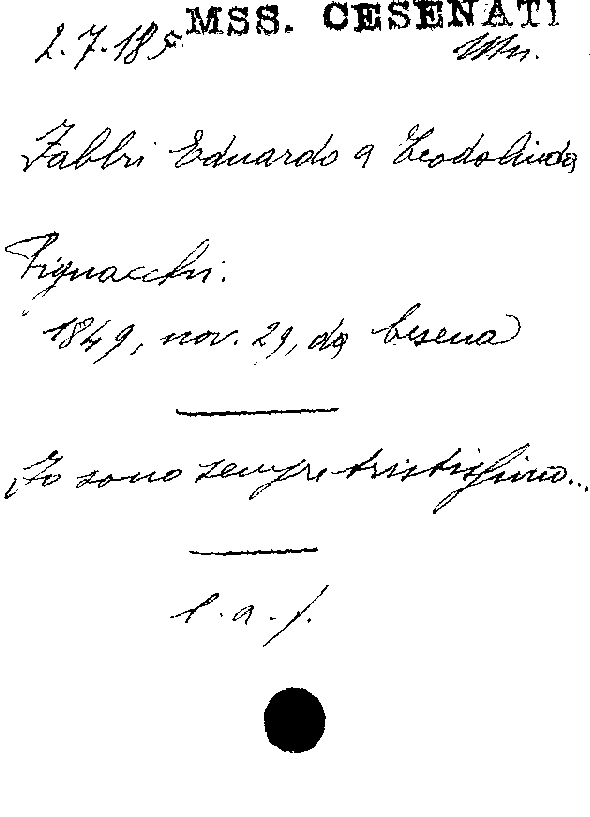 MSS. CESENATI
2.7.185
Fabbri Eduardo a Teodolinda
Pignacchi.
1849, nov. 29, da Cesena
Io sono sempre tristissimo...
l.a.f.